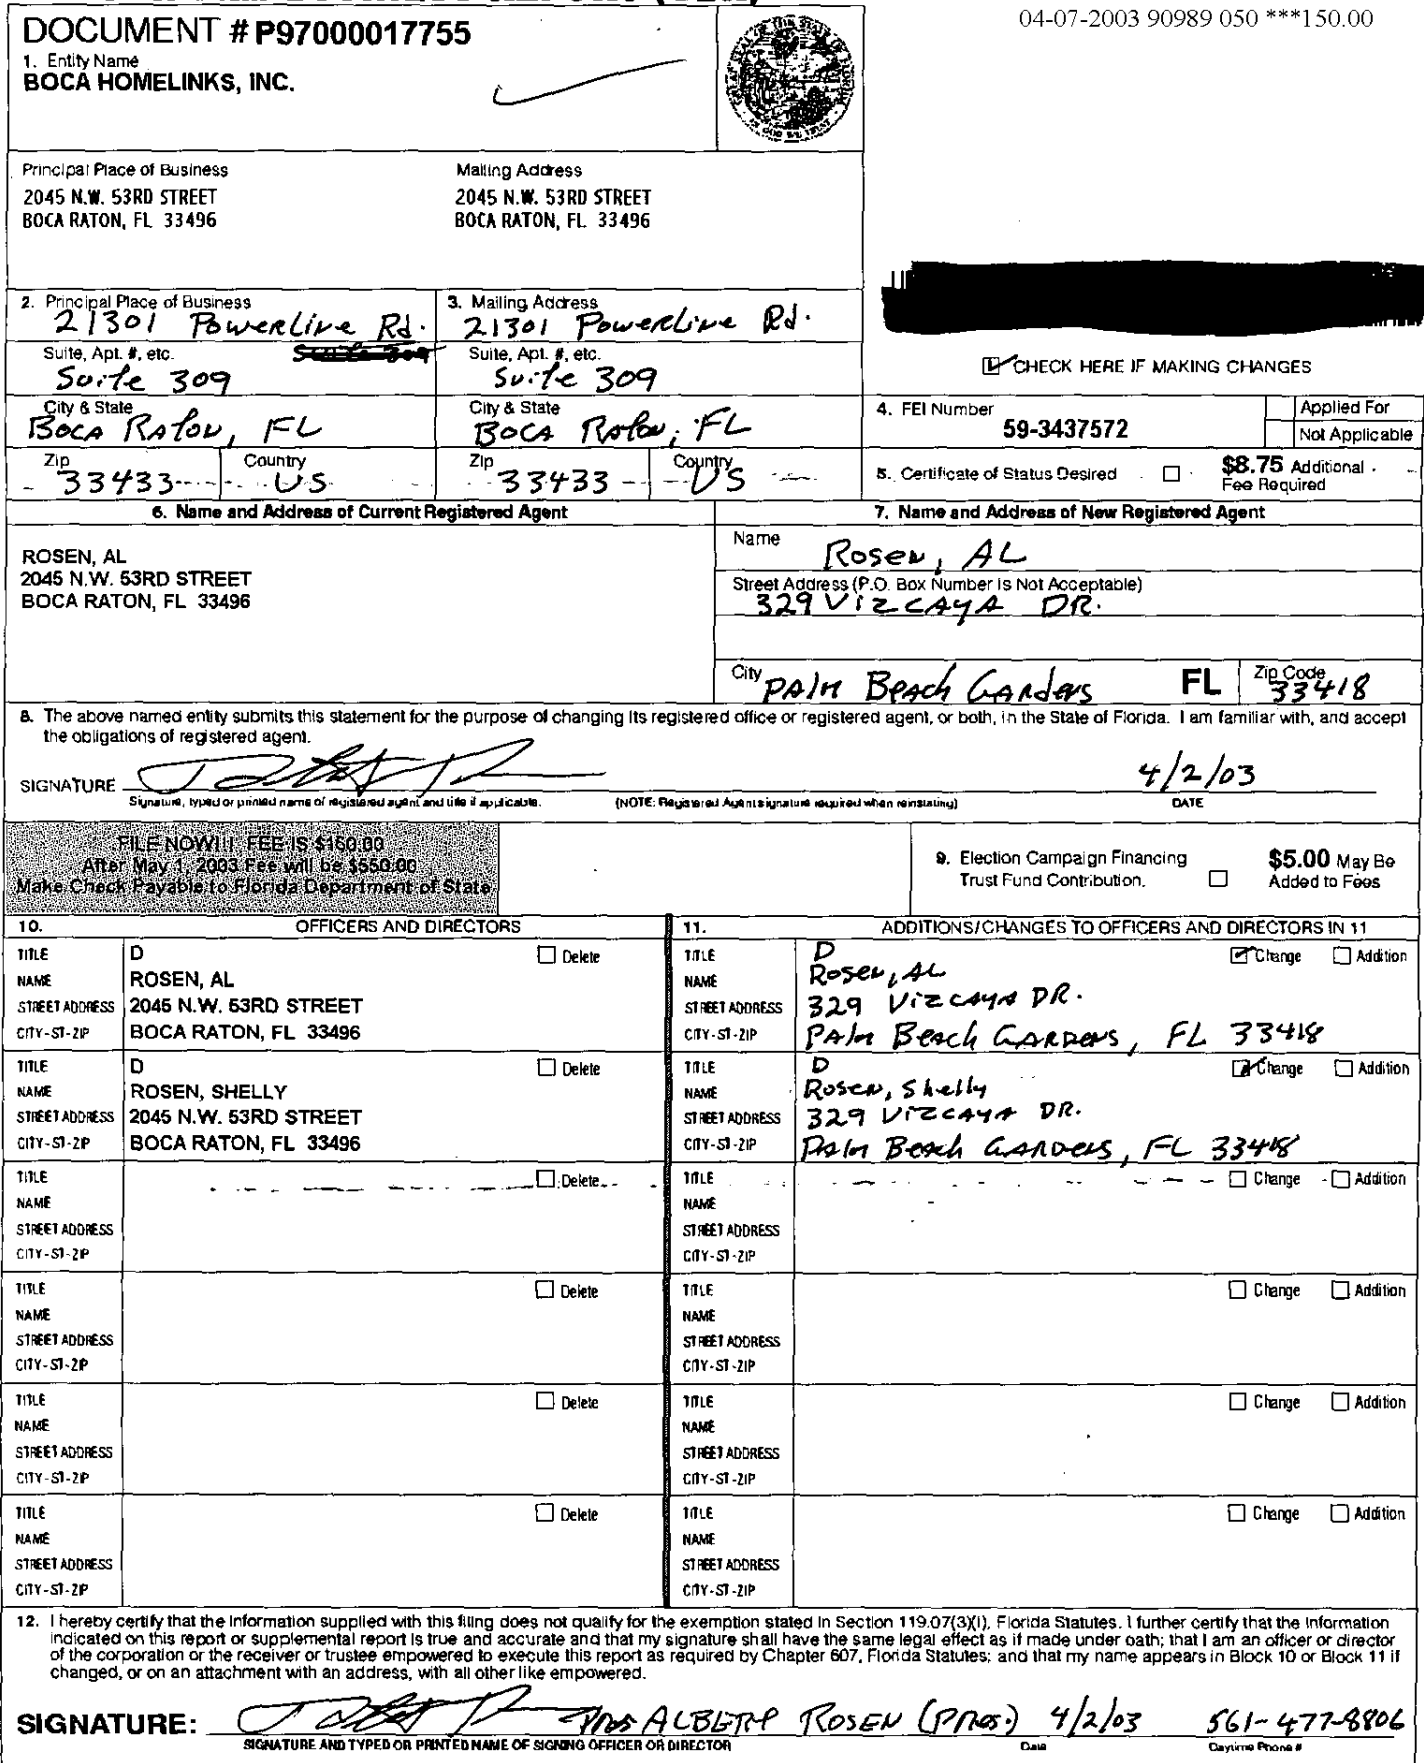 04-07-2003 90989 050 ***150.00
DOCUMENT # P97000017755
1. Entity Name
BOCA HOMELINKS, INC.
Principal Place of Business
2045 N.W. 53RD STREET
BOCA RATON, FL 33496
Mailing Address
2045 N.W. 53RD STREET
BOCA RATON, FL 33496
2. Principal Place of Business
21301 Powerline Rd.
Suite, Apt. #, etc.
Suite 309
City & State
Boca Raton, FL
Zip
33433
Country
US
3. Mailing Address
21301 Powerline Rd.
Suite, Apt. #, etc.
Suite 309
City & State
Boca Raton, FL
Zip
33433
Country
US
CHECK HERE IF MAKING CHANGES
4. FEI Number
59-3437572
Applied For
Not Applicable
5. Certificate of Status Desired
$8.75 Additional
Fee Required
6. Name and Address of Current Registered Agent
ROSEN, AL
2045 N.W. 53RD STREET
BOCA RATON, FL 33496
7. Name and Address of New Registered Agent
Name
Rosen, AL
Street Address (P.O. Box Number is Not Acceptable)
329 VIZCAYA DR.
City
PALM Beach GArdens
FL
Zip Code
33418
8. The above named entity submits this statement for the purpose of changing its registered office or registered agent, or both, in the State of Florida. I am familiar with, and accept
the obligations of registered agent.
SIGNATURE
4/2/03
Signature, typed or printed name of registered agent and title if applicable.
(NOTE: Registered Agent signature required when reinstating)
DATE
FILE NOW!!! FEE IS $150.00
After May 1, 2003 Fee will be $550.00
Make Check Payable to Florida Department of State
9. Election Campaign Financing
Trust Fund Contribution.
$5.00 May Be
Added to Fees
10. OFFICERS AND DIRECTORS
TITLE D Delete
NAME ROSEN, AL
STREET ADDRESS 2045 N.W. 53RD STREET
CITY-ST-ZIP BOCA RATON, FL 33496
TITLE D Delete
NAME ROSEN, SHELLY
STREET ADDRESS 2045 N.W. 53RD STREET
CITY-ST-ZIP BOCA RATON, FL 33496
TITLE Delete
NAME
STREET ADDRESS
CITY-ST-ZIP
TITLE Delete
NAME
STREET ADDRESS
CITY-ST-ZIP
TITLE Delete
NAME
STREET ADDRESS
CITY-ST-ZIP
TITLE Delete
NAME
STREET ADDRESS
CITY-ST-ZIP
11. ADDITIONS/CHANGES TO OFFICERS AND DIRECTORS IN 11
TITLE D Change Addition
NAME Rosen, AL
STREET ADDRESS 329 VIZCAYA DR.
CITY-ST-ZIP PALM Beach GARDENS, FL 33418
TITLE D Change Addition
NAME Rosen, Shelly
STREET ADDRESS 329 VIZCAYA DR.
CITY-ST-ZIP PALM Beach GARDENS, FL 33418
TITLE Change Addition
NAME
STREET ADDRESS
CITY-ST-ZIP
TITLE Change Addition
NAME
STREET ADDRESS
CITY-ST-ZIP
TITLE Change Addition
NAME
STREET ADDRESS
CITY-ST-ZIP
TITLE Change Addition
NAME
STREET ADDRESS
CITY-ST-ZIP
12. I hereby certify that the information supplied with this filing does not qualify for the exemption stated in Section 119.07(3)(i), Florida Statutes. I further certify that the information
indicated on this report or supplemental report is true and accurate and that my signature shall have the same legal effect as if made under oath; that I am an officer or director
of the corporation or the receiver or trustee empowered to execute this report as required by Chapter 607, Florida Statutes; and that my name appears in Block 10 or Block 11 if
changed, or on an attachment with an address, with all other like empowered.
SIGNATURE: ALBERT ROSEN (PRES.) 4/2/03 561-477-8806
SIGNATURE AND TYPED OR PRINTED NAME OF SIGNING OFFICER OR DIRECTOR Date Daytime Phone #